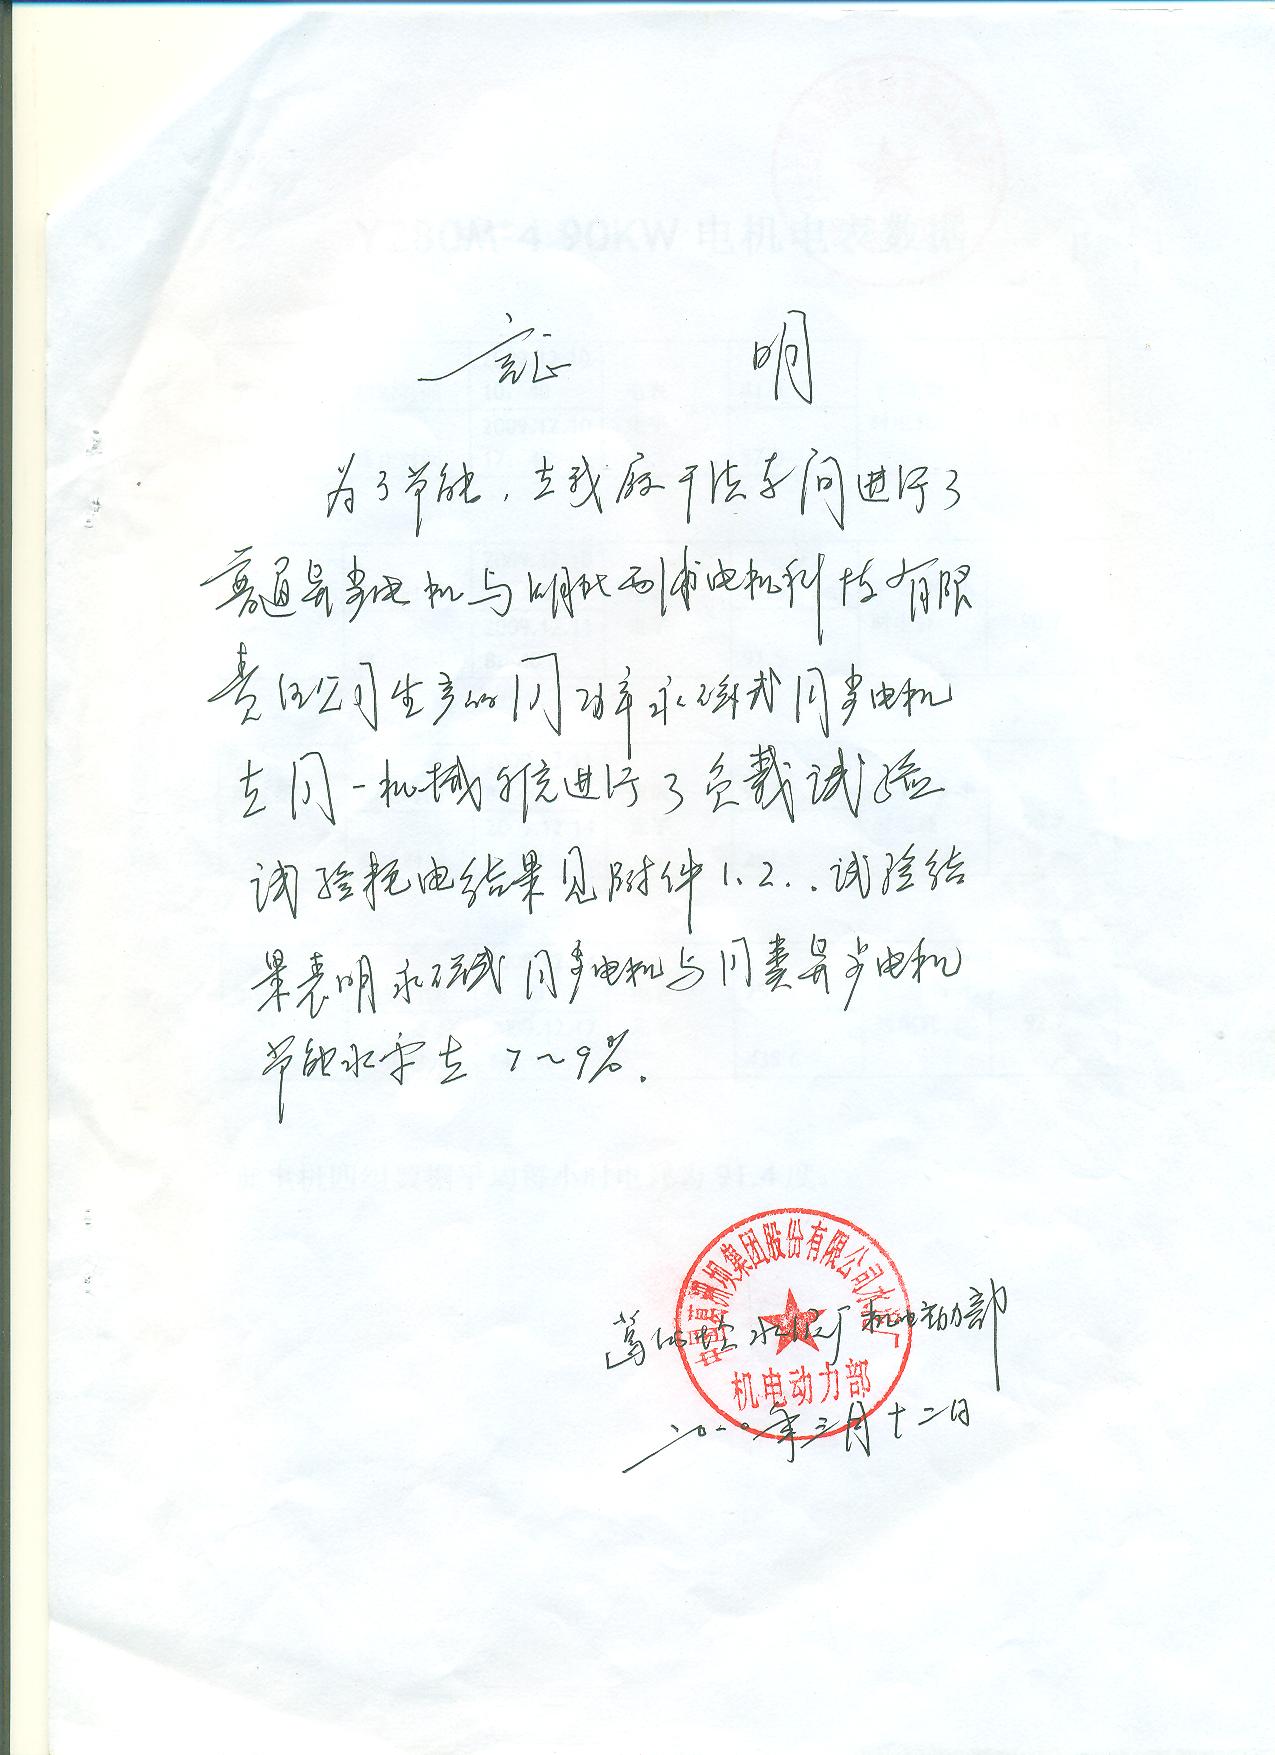 Y280M-4 90KW 电机电表数据
证 明
为了节能，在我厂干法车间进行了
普通异步电机与湖北西浦电机科技有限
责任公司生产的同功率永磁式同步电机
在同一机械系统进行了负载试验
试验耗电结果见附件1、2..试验结
果表明永磁式同步电机与同类异步电机
节能水平在 7~9%.
葛洲坝集团股份有限公司水泥厂
葛洲坝水泥厂机电动力部
机电动力部
二0一0年三月十二日